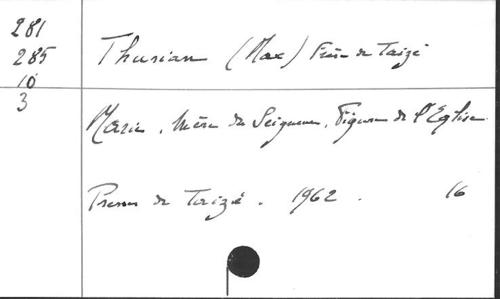 281
285
10
3
Thurian (Max) Frère de Taizé
Marie, Mère du Seigneur, Figure de l'Eglise.
Presses de Taizé. 1962. 16